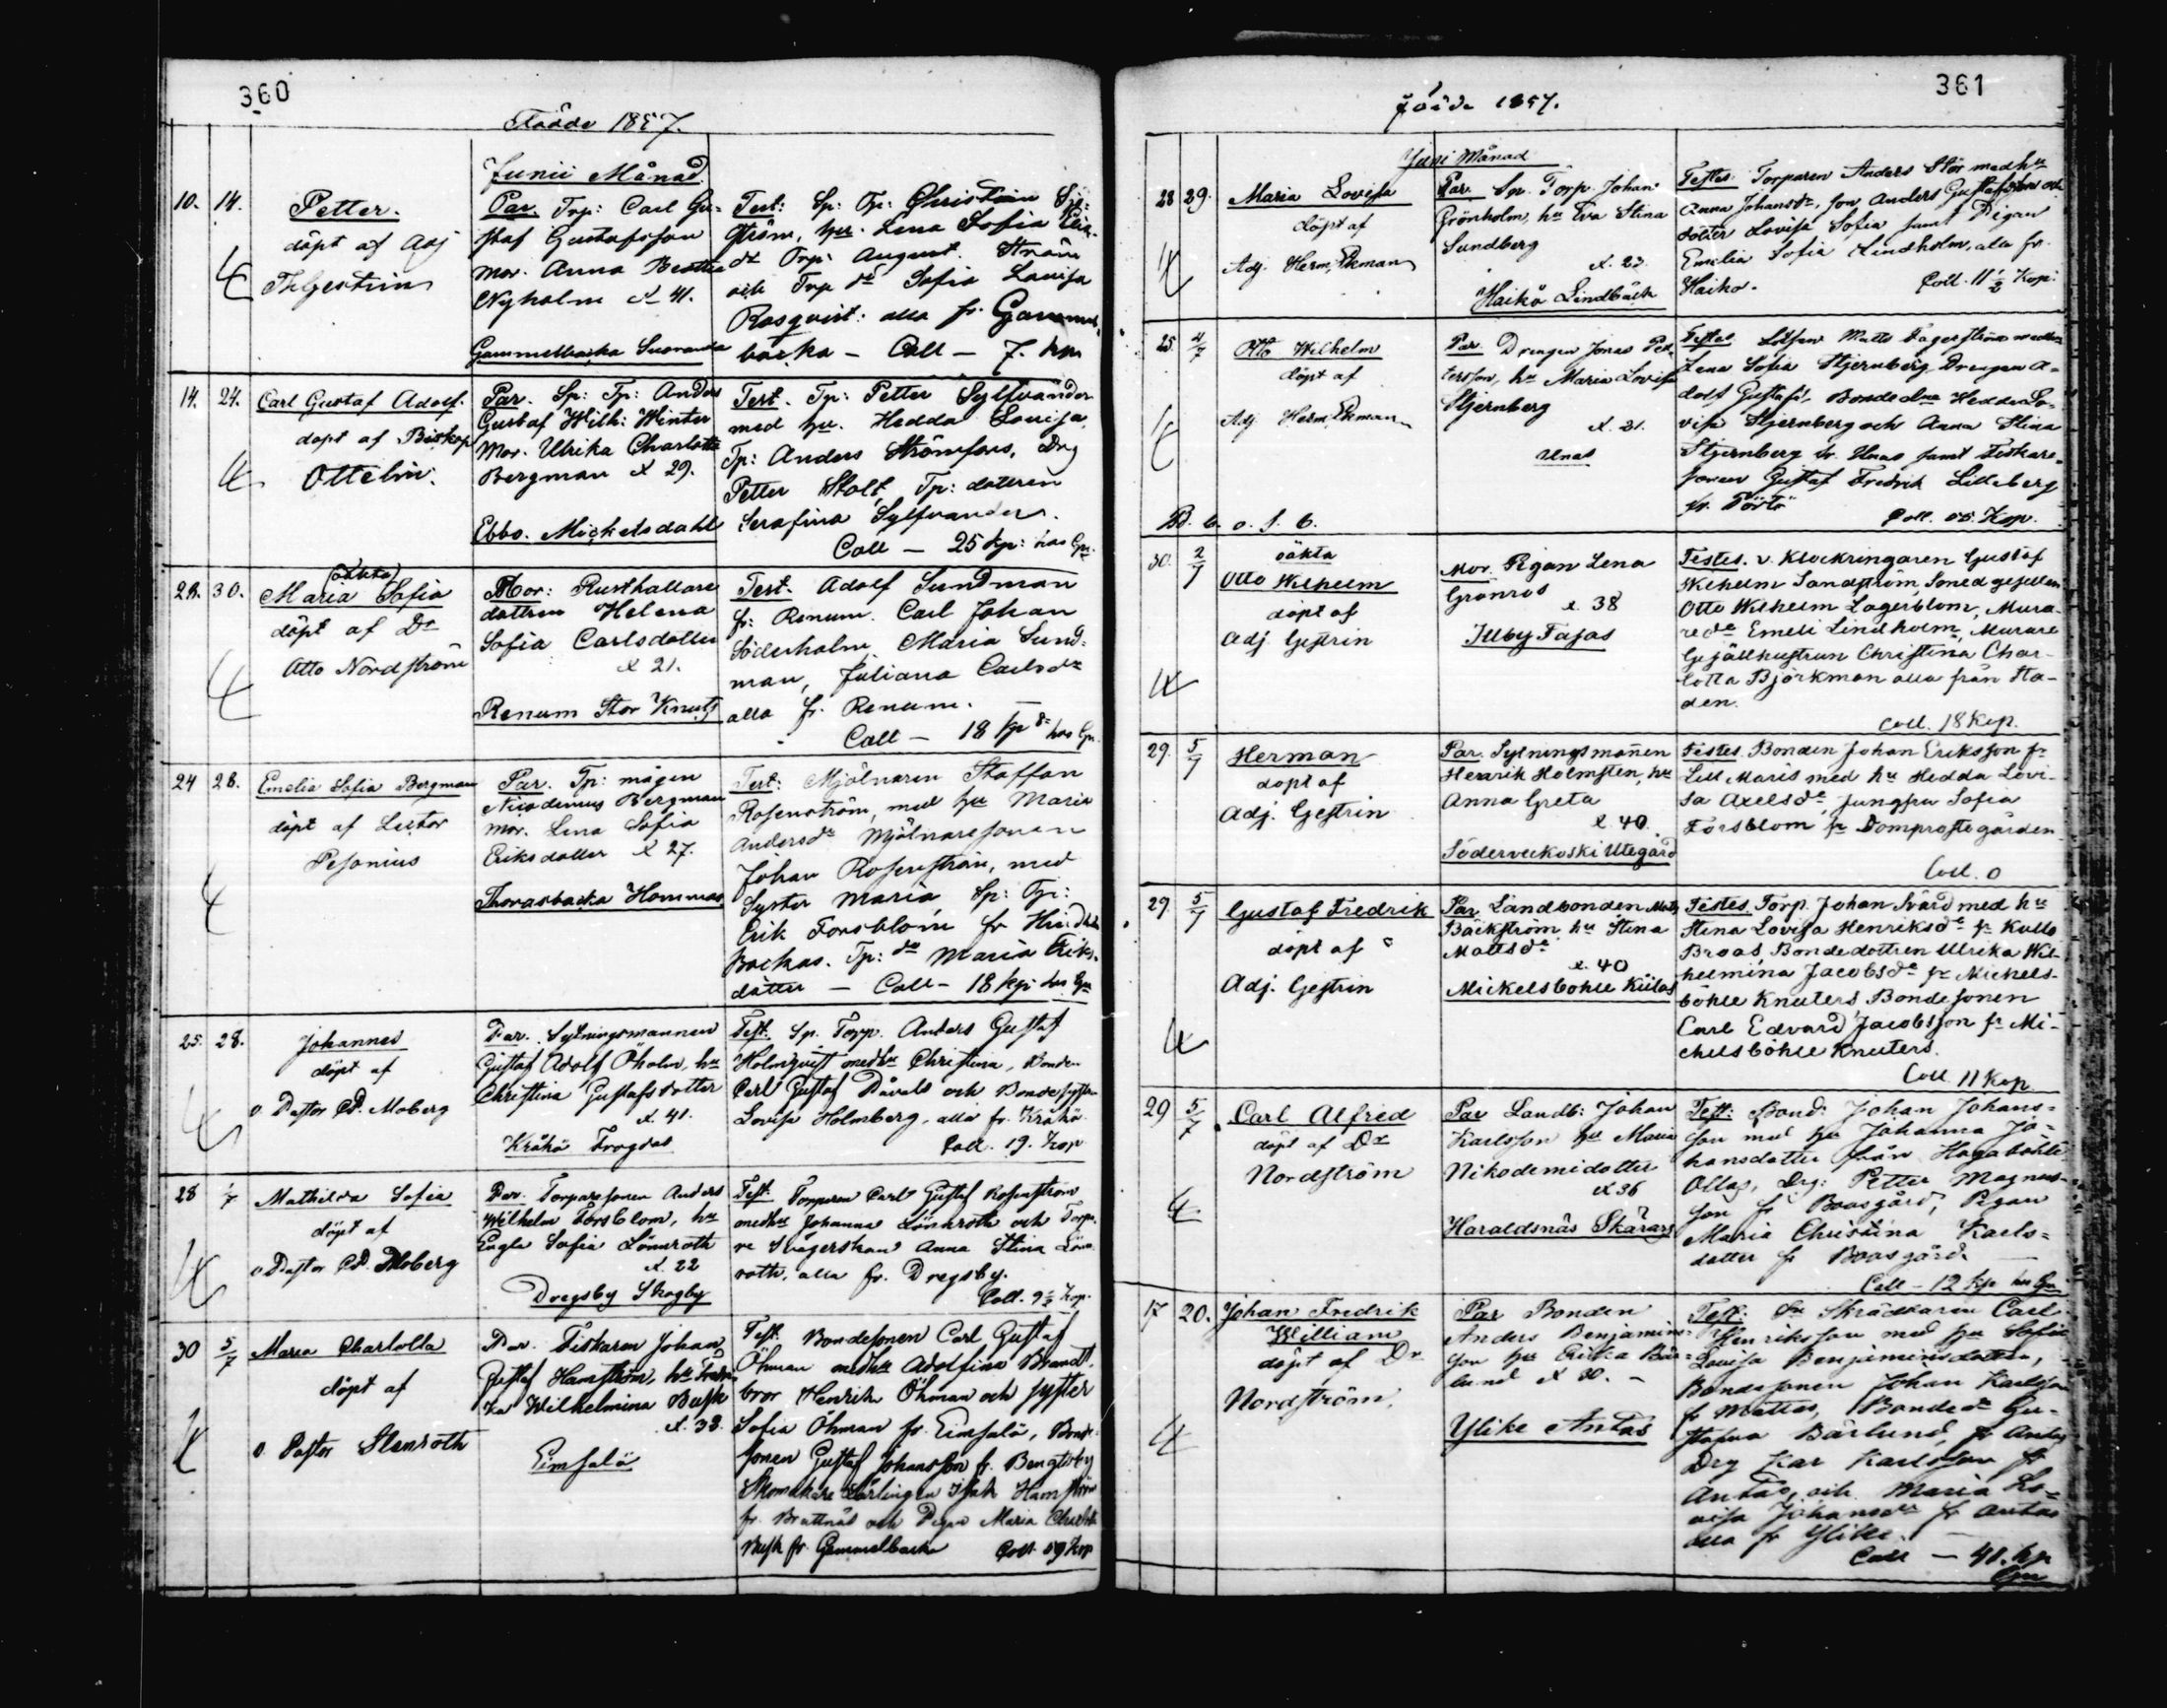 360
Födde 1857.
Junii Månad.
10. 14.
Petter.
döpt af Adj
Th Gestrin
Par. Trp: Carl Gu=
staf Gustafsson
Mor. Anna Beatha
Nyholm x 41.
Gammelbacka
Test: Sp: Tp: Christian
hu. Lena Sofia
Trp: August Ström
och Trp dr Sofia Lovisa
Rosqvist: alla fr. Gammel
backa — Coll — 7. kp
14. 24.
Carl Gustaf Adolf.
döpt af Biskop
Ottelin.
Par. Sp: Tp: Anders
Gustaf Wilh: Winter
Mor. Ulrika Charlotta
Bergman x 29.
Ebbo. Mickelsdahl
Test. Tp: Petter Sylfvander
med hu. Hedda Lovisa,
Tp: Anders Strömfors, Drg
Petter Stolt, Tp: dottren
Serafina Sylfvander.
Coll — 25 kp:
28. 30.
(oäkta)
Maria Sofia
döpt af Dr
Otto Nordström
Mor: Rusthållare
dottren Helena
Sofia Carlsdotter
x 21.
Renum Stor Knuts
Test. Adolf Sundman
fr: Renum. Carl Johan
Söderholm, Maria Sund=
man, Juliana Carlsdr
alla fr. Renum.
Coll — 18 kp
24 28.
Emelia Sofia Bergman
döpt af Lector
Pesonius
Par. Tp: mågen
Nicodemus Bergman
Mor. Lena Sofia
Eriksdotter x 27.
Thorasbacka Hommas
Test: Mjölnaren Staffan
Rosenström, med hu Maria
Andersdr Mjölnaresonen
Johan Rosenström, med
Syster Maria Sp: Tp:
Erik Forsblom fr
Backas. Tp: dr Maria Eriks=
dotter — Coll — 18 kp:
25. 28.
Johannes
döpt af
v. Pastor Moberg
Par. Sytningsmannen
Gustaf Adolf Öholm, hu
Christina Gustafsdotter
x. 41.
Kråkö Frogdas
Test. Sp. Torp. Anders Gustaf
Holmqvist med hu Christina, Bonden
Carl Gustaf och Bondesystern
Lovisa Holmberg, alla fr. Kråkö
Coll. 19. kop
28 1/7
Mathilda Sofia
döpt af
v Pastor Moberg
Par. Torparesonen Anders
Wilhelm Forsblom, hu
Engla Sofia Lönnroth
x. 22
Dregsby Skogby
Test. Torparen Carl Gustaf Rosenström
med hu Johanna Lönnroth och Torpa
re Svägerskan Anna Stina Lönn
roth, alla fr. Dregsby.
Coll. 9½ kop.
30 5/7
Maria Charlotta
döpt af
v. Pastor Stenroth
Par. Fiskaren Johan
Gustaf Hamström, hu Fredri
ka Wilhelmina Busk
x. 38.
Eimsalö
Test. Bondesonen Carl Gustaf
Öhman med hu Adolfina Brandt,
bror Henrik Öhman och syster
Sofia Öhman fr. Eimsalö, Bonde
sonen Gustaf Johansson fr. Bengtsby
Skomakare Lärlingen Isak Hamström
fr. Brattnäs och Pigan Maria Charlotta
Busk fr. Gammelbacka Coll. 59 kop
361
Födde 1857.
Juni Månad
28 29.
Maria Lovisa
döpt af
Adj. Herm. Ekman
Par. Sp. Torp. Johan
Grönholm, hu Eva Stina
Sundberg
x. 23.
Haikö Lindbäck
Testes. Torparen Anders Stör med hu
Anna Johansdr, son Anders Gustafsson och
dotter Lovisa Sofia samt Pigan
Emelia Sofia Lindholm, alla fr.
Haiko. Coll. 11½ kop.
25. 4/7
Otto Wilhelm
döpt af
Adj. Herm. Ekman
Par. Drengen Jonas Pet=
tersson, hu Maria Lovisa
Stjernberg
x. 21.
Unas
Testes. Lotsen Matts Fagerström med hu
Lena Sofia Stjernberg, Drengen A=
dolf Gustafs, Bondedra Hedda Lo=
visa Stjernberg och Anna Stina
Stjernberg fr. Unas samt Fiskare=
sonen Gustaf Fredrik Lilleberg
fr. Pörtö Coll. 05. Kop.
30. 2/7
oäkta
Otto Wilhelm
döpt af
Adj. Gestrin
Mor. Pigan Lena
Grönros
x. 38
Illby Fajas
Testes. v. Klockringaren Gustaf
Wilhelm Sandström, Smedgesellen
Otto Wilhelm Lagerblom, Mura=
redr Emeli Lindholm, Murare
Gesällhustrun Christina Char=
lotta Björkman alla från Sta=
den.
Coll. 18 Kop.
29. 5/7
Herman
döpt af
Adj. Gestrin
Par. Sytningsmannen
Henrik Holmsten, hu
Anna Greta
x. 40.
Söderveckoski Utegård
Testes. Bonden Johan Eriksson fr
Lill Maris med hu Hedda Lovi=
sa Axelsdr, Jungfru Sofia
Forsblom fr Domprostegården
Coll. 0
29. 5/7
Gustaf Fredrik
döpt af
Adj. Gestrin
Par. Landbonden Matts
Bäckström hu Stina
Mattsdr
x. 40
Mickelsböhle Kiilas
Testes. Torp. Johan Svärd med hu
Stina Lovisa Henriksdr fr Kullo
Broas, Bondedottren Ulrika Wil=
helmina Jacobsdr fr Mickels=
böhle Knuters, Bondesonen
Carl Edvard Jacobsson fr Mi=
ckelsböhle Knuters.
Coll. 11 Kop
29 5/7
Carl Alfred
döpt af Dr
Nordström
Par Landb: Johan
Karlsson hu Maria
Nikodemidotter
x 36
Haraldsnäs Skärars
Test: Bond: Johan Johans=
son med hu Johanna Jo=
hansdotter från Hagaböhle
Ollas, Drg: Petter Magnus=
son fr Boasgård, Pigan
Maria Christina Karls=
dotter fr Boasgård.
Coll — 12 kp
17 20.
Johan Fredrik
William
döpt af Dr
Nordström.
Par Bonden
Anders Benjamins=
son hu Erika Bär=
lund x 30. —
Ylike Antas
Test: Skräddaren Carl
Henriksson med hu Sofia
Lovisa Benjaminsdotter,
Bondesonen Johan Karlsson
fr Mattas, Bondedr Gu=
stafva Bärlund, fr Antas
Drg Kar Karlsson fr
Antas, och Maria Lo=
visa Johansdr fr Antas
alla fr Ylike. —
Coll — 41. kp